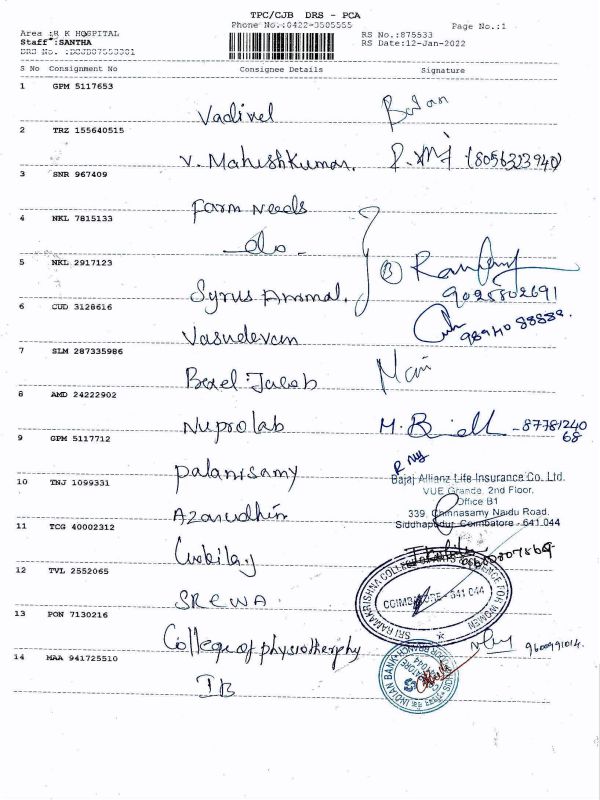 TPC/CJB DRS - PCA
Phone No.:0422-3505555 Page No.:1
Area :R K HOSPITAL
Staff :SANTHA
RS No.:875533
RS Date:12-Jan-2022
S No Consignment No Consignee Details Signature
1 GPM 5117653
Vadivel
2 TRZ 155640515
V. Maheshkumar. (8056323940)
3 SNR 967409
Farm Needs
4 NKL 7815133
- do -
5 NKL 2917123
Syrus Ammal. (3)
9025802691
6 CUD 3128616
Vasudevan
7 SLM 287335986
8 AMD 24222902
Nuprolab M. - 87781240
68
9 GPM 5117712
Palanisamy
Bajaj Allianz Life Insurance Co. Ltd.
VUE Grande, 2nd Floor,
Office B1
339, Chinnasamy Naidu Road.
Siddhapudur, Coimbatore - 641 044
10 TNJ 1099331
Azarudhin
11 TCG 40002312
12 TVL 2552065
SREWA
SRI RAMAKRISHNA COLLEGE OF ARTS & SCIENCE FOR WOMEN
COIMBATORE - 641 044
13 PON 7130216
College of physiotherphy
9600991014.
14 MAA 941725510
IB
INDIAN BANK